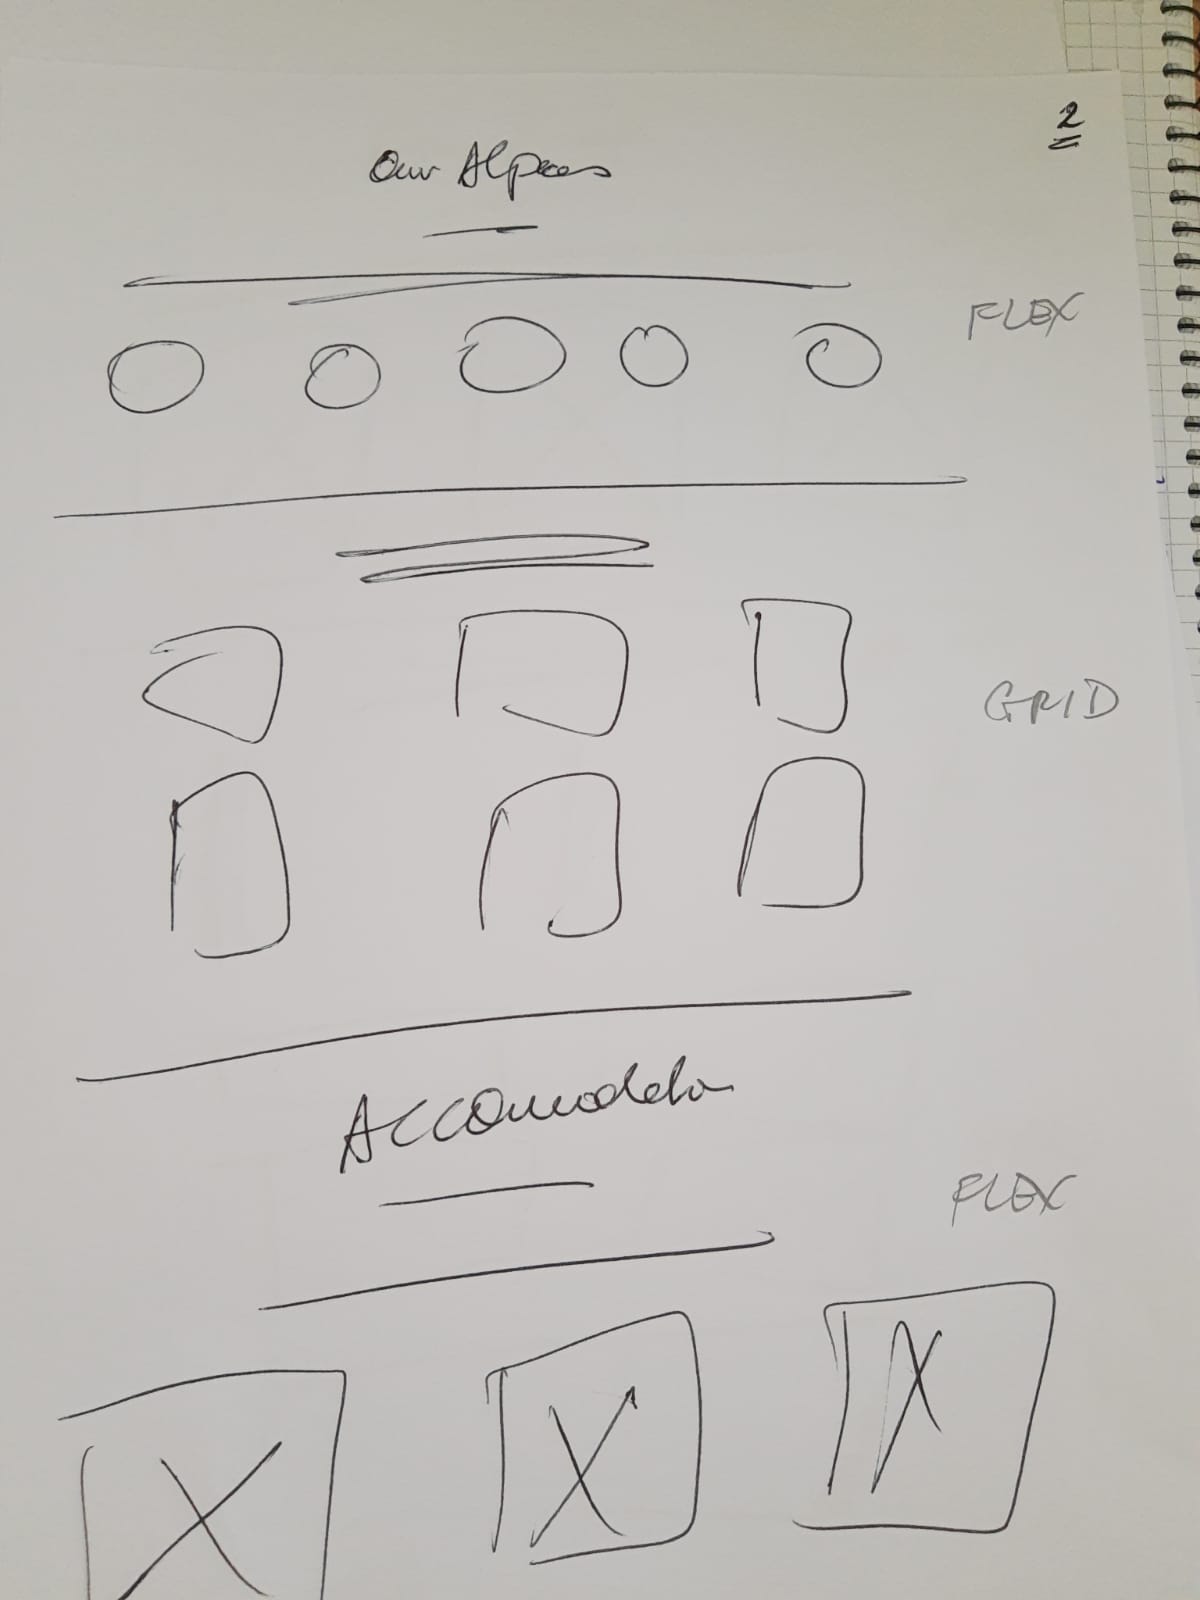 2
Our Alpacas
FLEX
GRID
Accomodation
FLEX